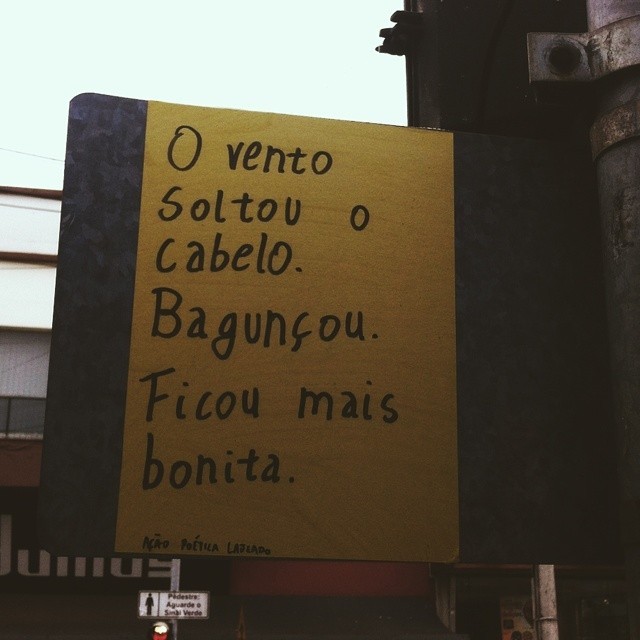 O vento
soltou o
cabelo.
Bagunçou.
Ficou mais
bonita.
AÇÃO POÉTICA
Pedestre:
Aguarde o
Sinal Verde